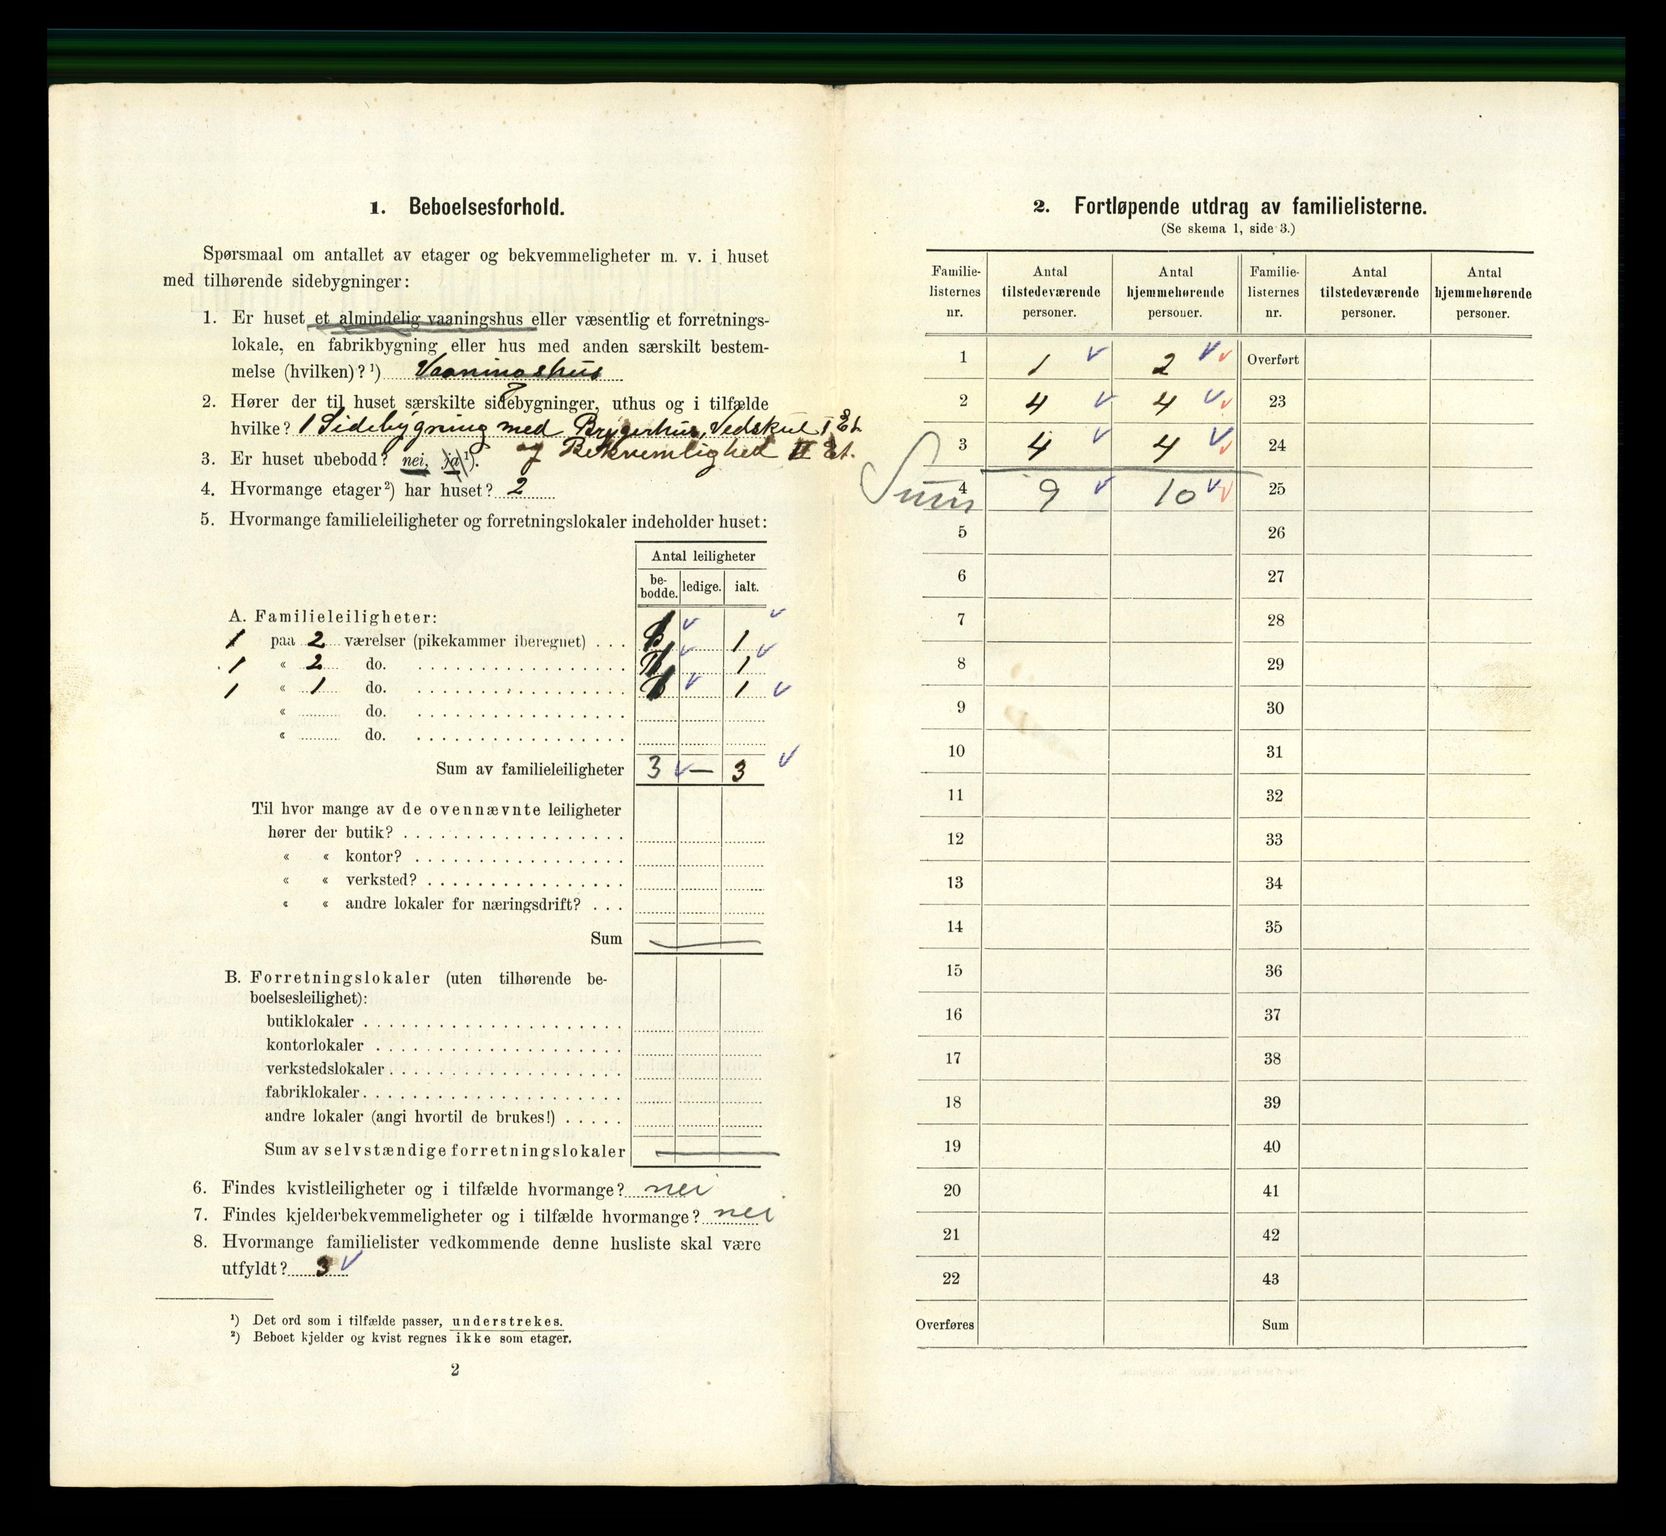 1. Beboelsesforhold.
Spørsmaal om antallet av etager og bekvemmeligheter m. v. i huset
med tilhørende sidebygninger:
1. Er huset et almindelig vaaningshus eller væsentlig et forretnings-
lokale, en fabrikbygning eller hus med anden særskilt bestem-
melse (hvilken)? ¹) Vaaningshus
2. Hører der til huset særskilte sidebygninger, uthus og i tilfælde
hvilke? 1 Sidebygning med Bryggerhus, Vedskul I Et.
og Bekvemlighed II Et.
3. Er huset ubebodd? nei, ja ¹).
4. Hvormange etager ²) har huset? 2
5. Hvormange familieleiligheter og forretningslokaler indeholder huset:
Antal leiligheter
be-
bodde. ledige. ialt.
A. Familieleiligheter:
1 paa 2 værelser (pikekammer iberegnet) . . . 1
1 « 2 do. 1
1 « 1 do. 1
« do.
« do.
Sum av familieleiligheter 3 — 3
Til hvor mange av de ovennævnte leiligheter
hører der butik?
« « kontor?
« « verksted?
« « andre lokaler for næringsdrift? . . .
Sum
B. Forretningslokaler (uten tilhørende be-
boelsesleilighet):
butiklokaler
kontorlokaler
verkstedslokaler
fabriklokaler
andre lokaler (angi hvortil de brukes!)
Sum av selvstændige forretningslokaler
6. Findes kvistleiligheter og i tilfælde hvormange? nei
7. Findes kjelderbekvemmeligheter og i tilfælde hvormange? nei
8. Hvormange familielister vedkommende denne husliste skal være
utfyldt? 3
¹) Det ord som i tilfælde passer, understrekes.
²) Beboet kjelder og kvist regnes ikke som etager.
2
2. Fortløpende utdrag av familielisterne.
(Se skema 1, side 3.)
Familie-
listernes
nr. Antal
tilstedeværende
personer. Antal
hjemmehørende
personer. Familie-
listernes
nr. Antal
tilstedeværende
personer. Antal
hjemmehørende
personer.
1 1 2 Overført
2 4 4 23
3 4 4 24
Sum 4 9 10 25
5 26
6 27
7 28
8 29
9 30
10 31
11 32
12 33
13 34
14 35
15 36
16 37
17 38
18 39
19 40
20 41
21 42
22 43
Overføres Sum